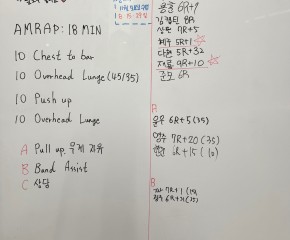 AMRAP : 18 MIN
10 Chest to bar
10 Overhead Lunge (45/35)
10 Push up
10 Overhead Lunge
A Pull up, 무게 자유
B Band Assist
C 상담
6R+9
김경민 8R
7R+5
5R+1
다현 5R+32
9R+10
준모 6R
A
6R+5 (35)
영수 7R+20 (35)
6R+15 (10)
B
7R+1 (15)
6R+31 (25)